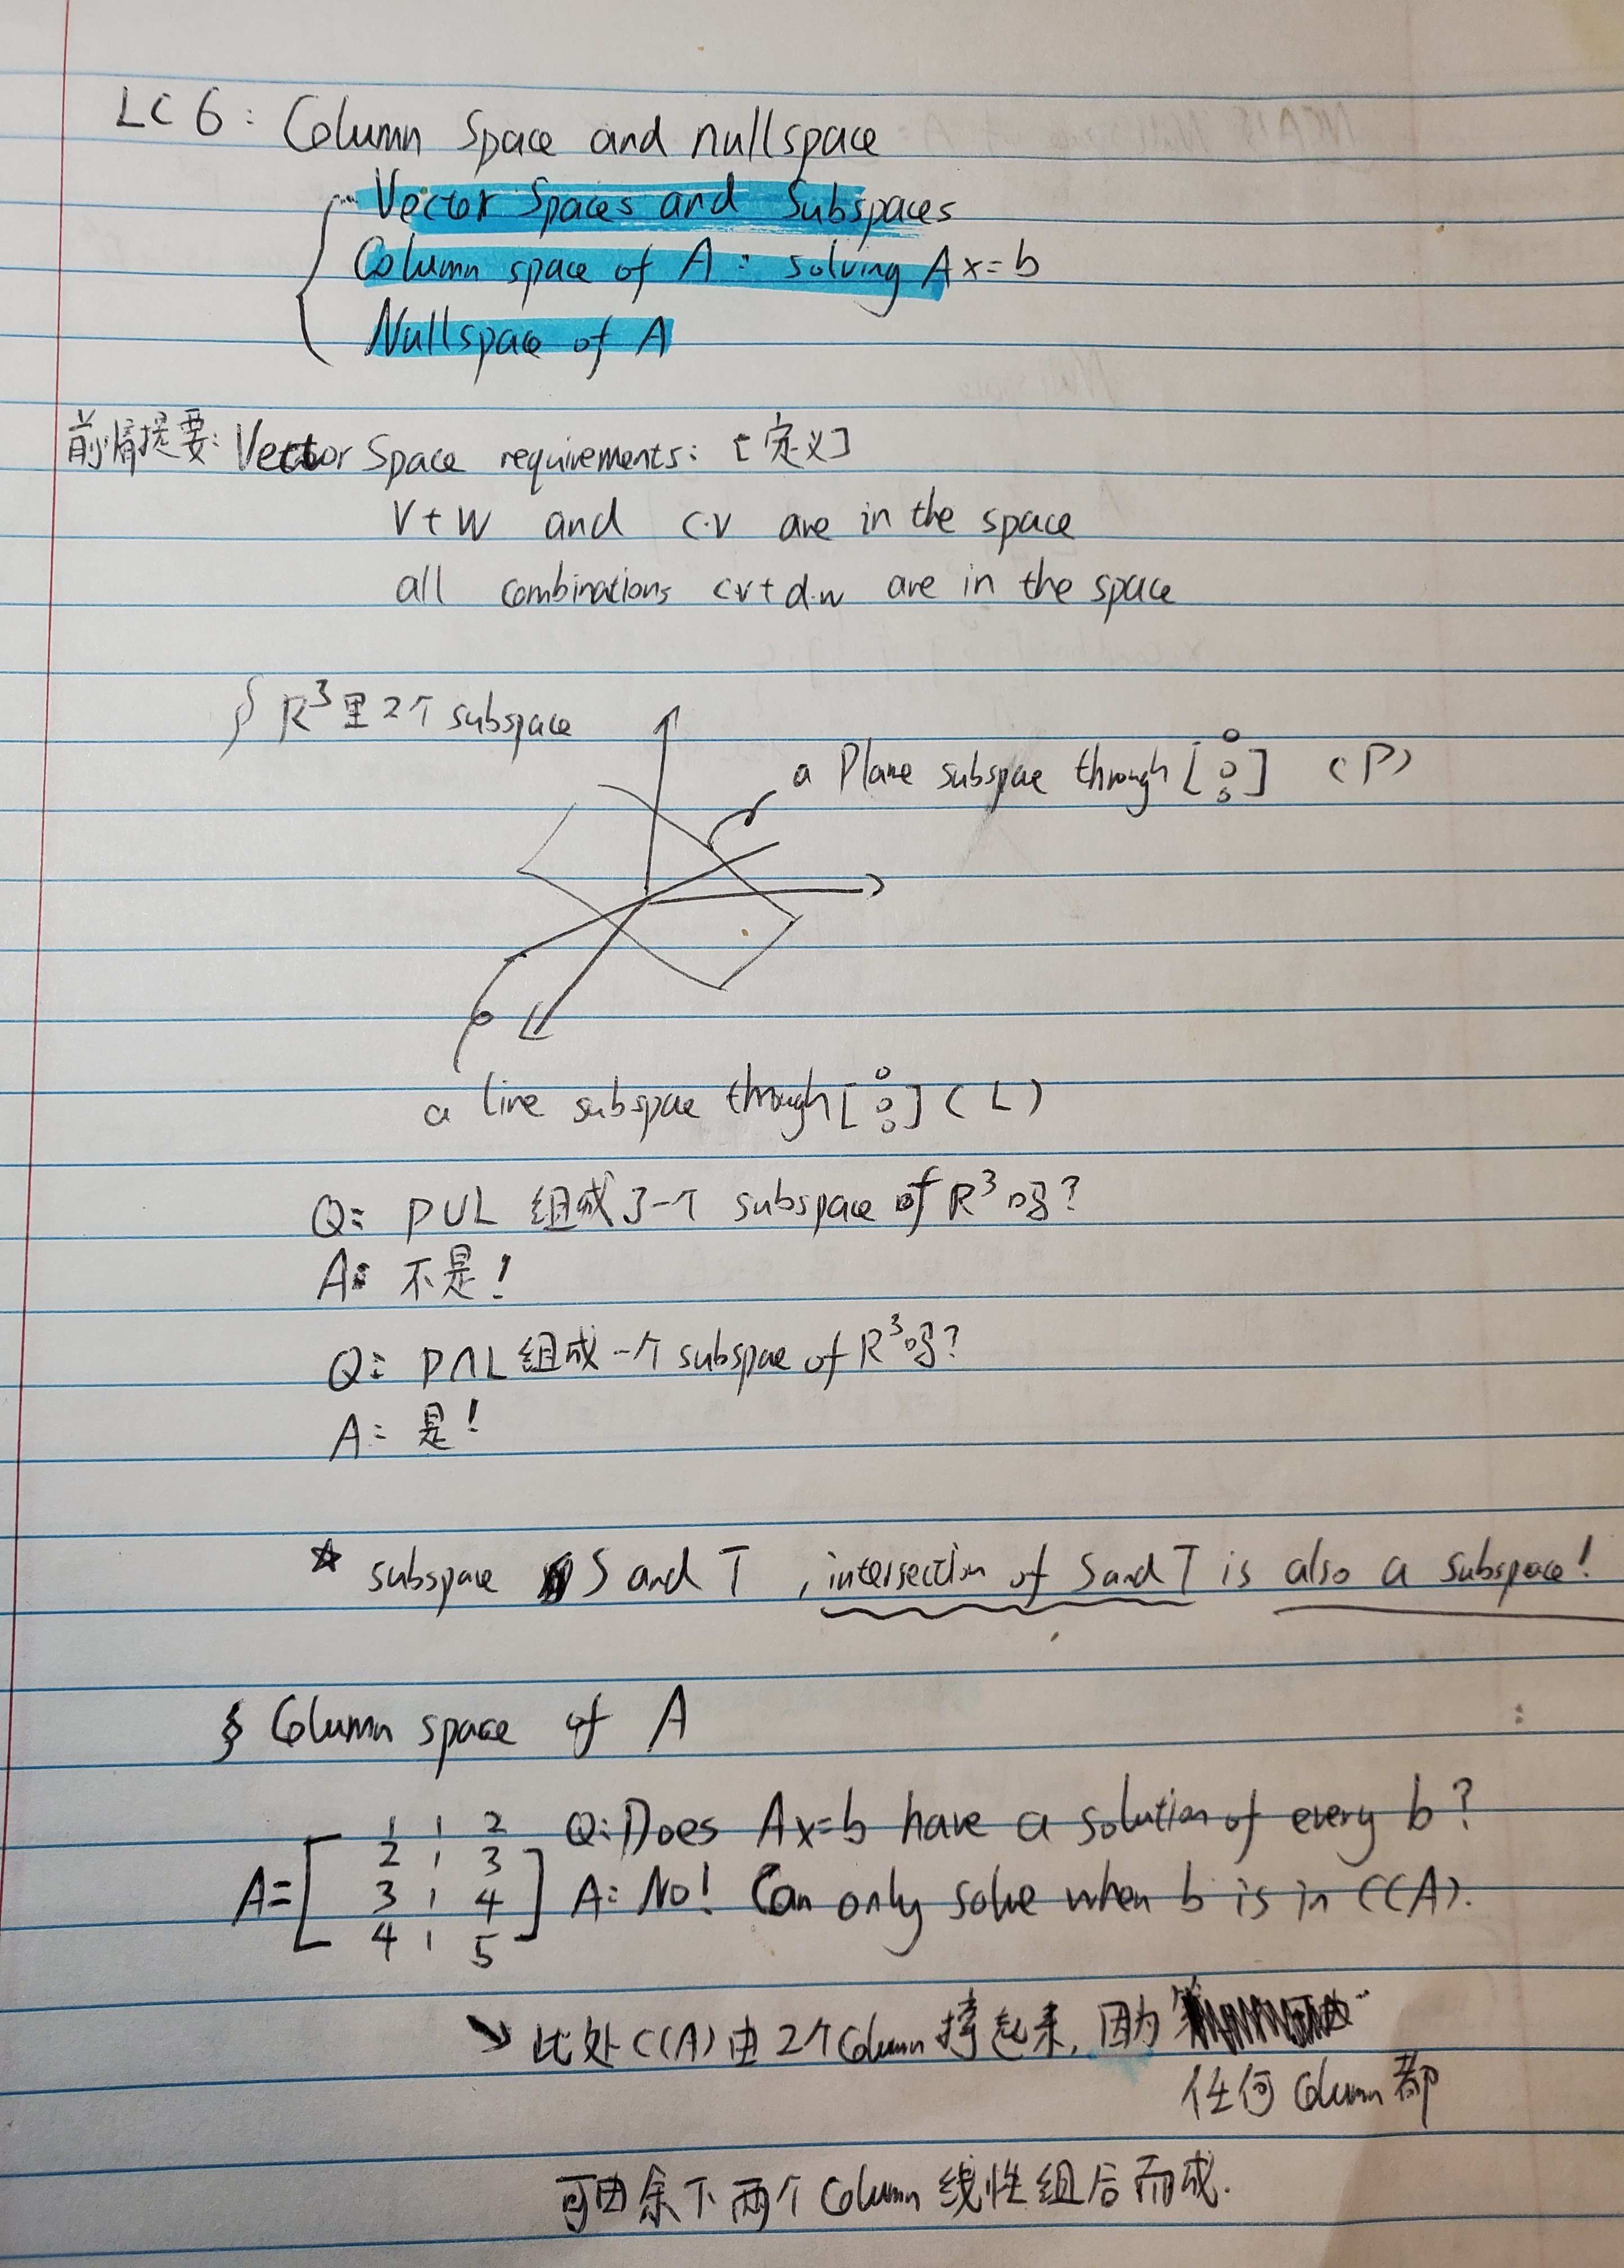 LC 6: Column Space and nullspace
Vector Spaces and Subspaces
Column space of A: solving Ax=b
Nullspace of A
前情提要: Vector Space requirements: [定义]
V+W and c·v are in the space
all combinations cv+d·w are in the space
§ R³里2个subspace
a Plane subspae through [0 0 0] (P)
a line subspae through [0 0 0] (L)
Q: P∪L 组成了一个 subspace of R³吗?
A: 不是!
Q: P∩L组成一个subspae of R³吗?
A: 是!
☆ subspace S and T, intersection of S and T is also a subspace!
§ Column space of A
A=[1 1 2
2 1 3
3 1 4
4 1 5]
Q: Does Ax=b have a solution of every b?
A: No! Can only solve when b is in C(A).
↘ 此处C(A)由2个Column撑起来, 因为
任何Column都
可由余下两个Column线性组后而成.